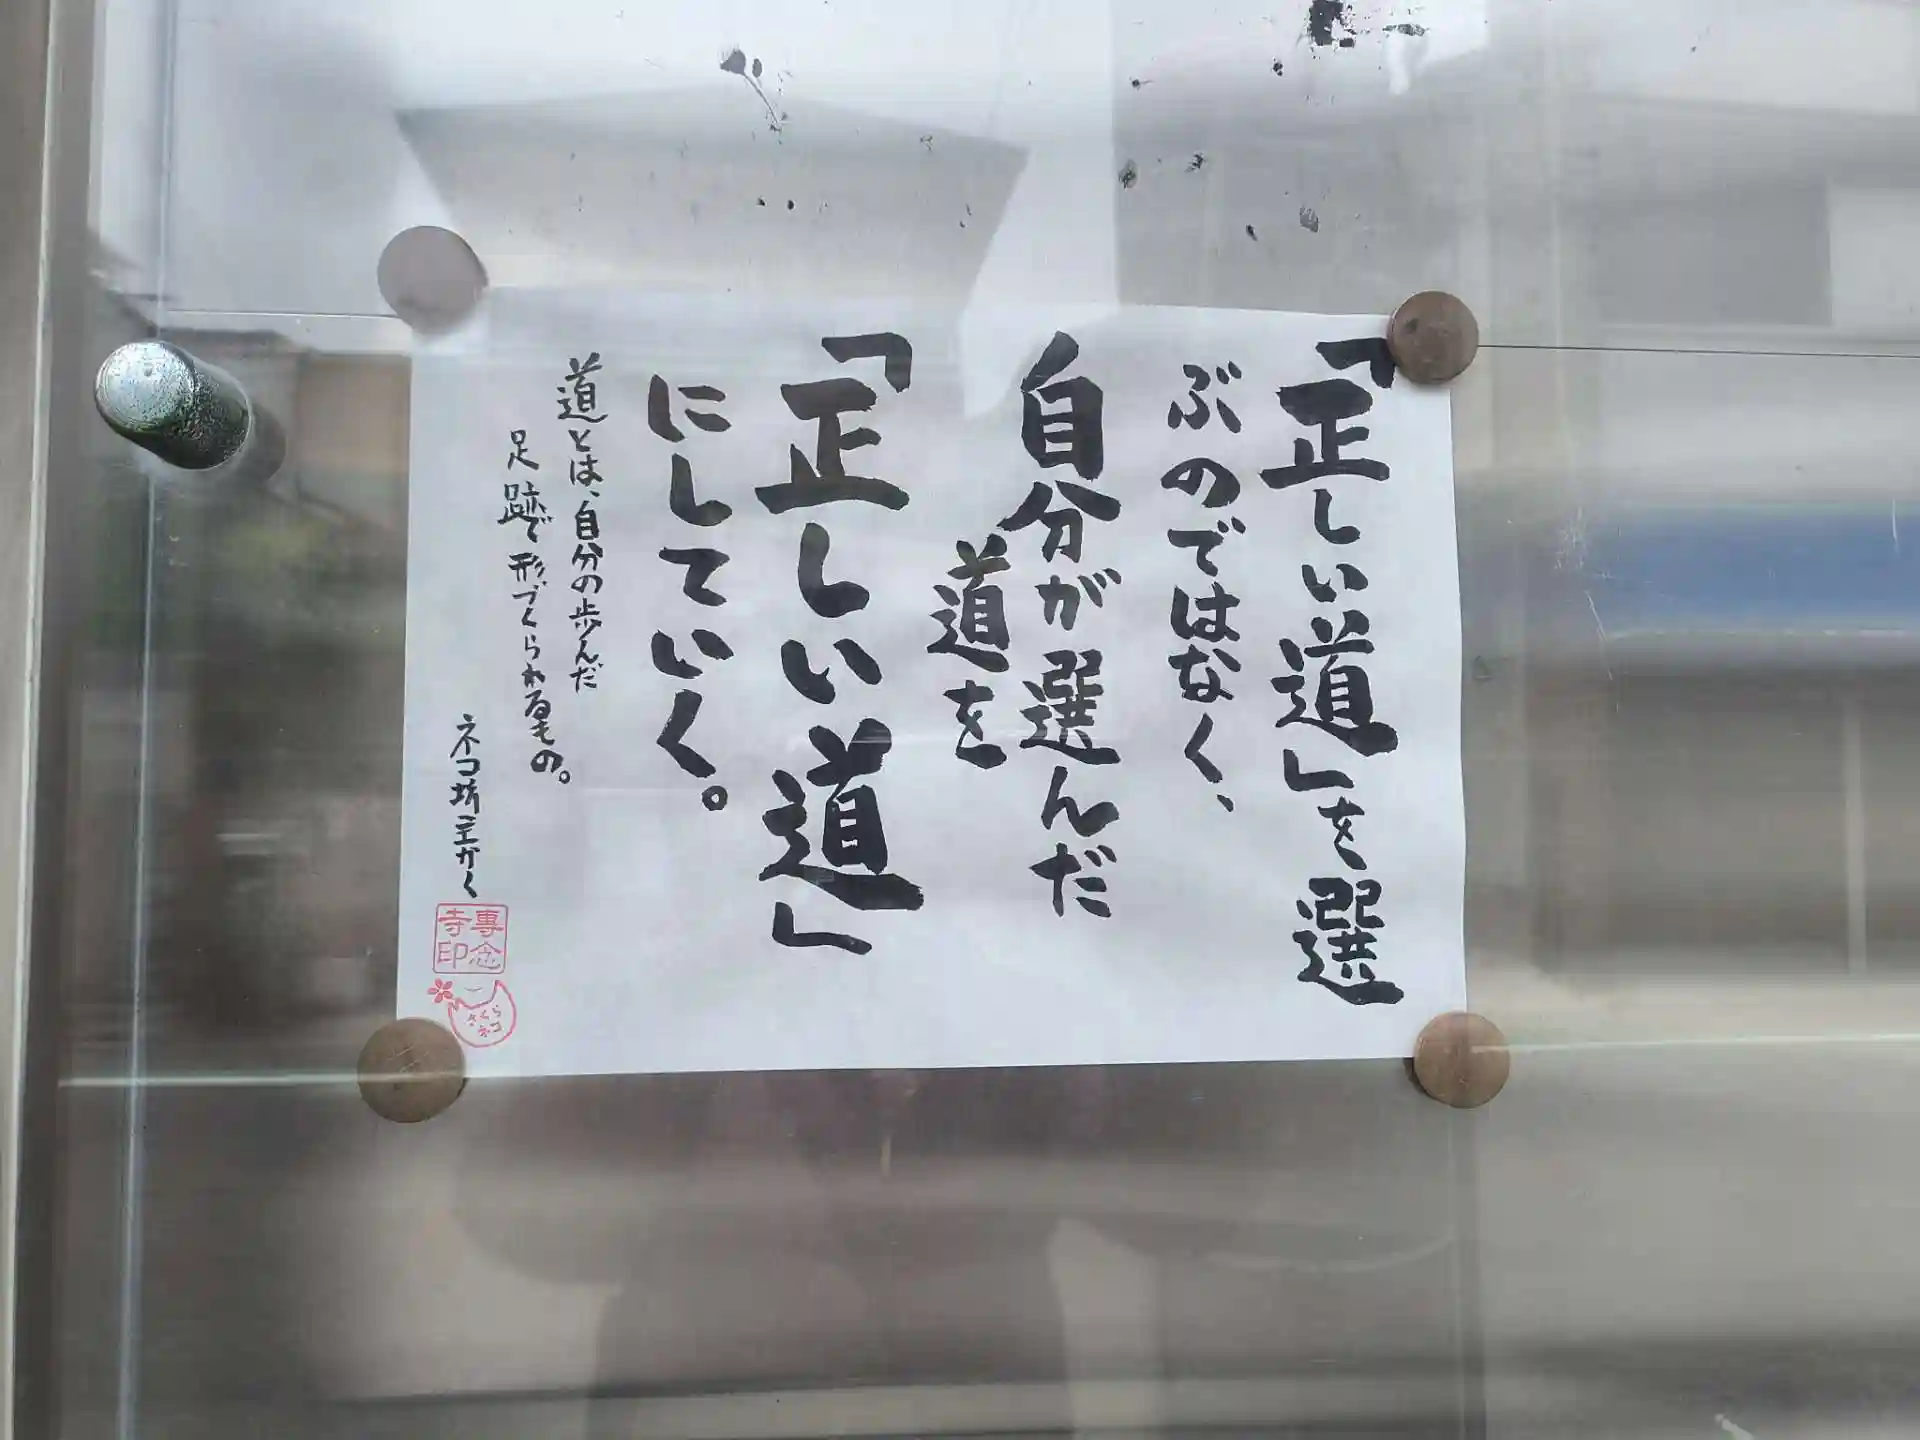 「正しい道」を選
ぶのではなく、
自分が選んだ
道を
「正しい道」
にしていく。
道とは、自分の歩んだ
足跡で形づくられるもの。
ネコ坊主かく
専念
寺印
さくら
ネコ